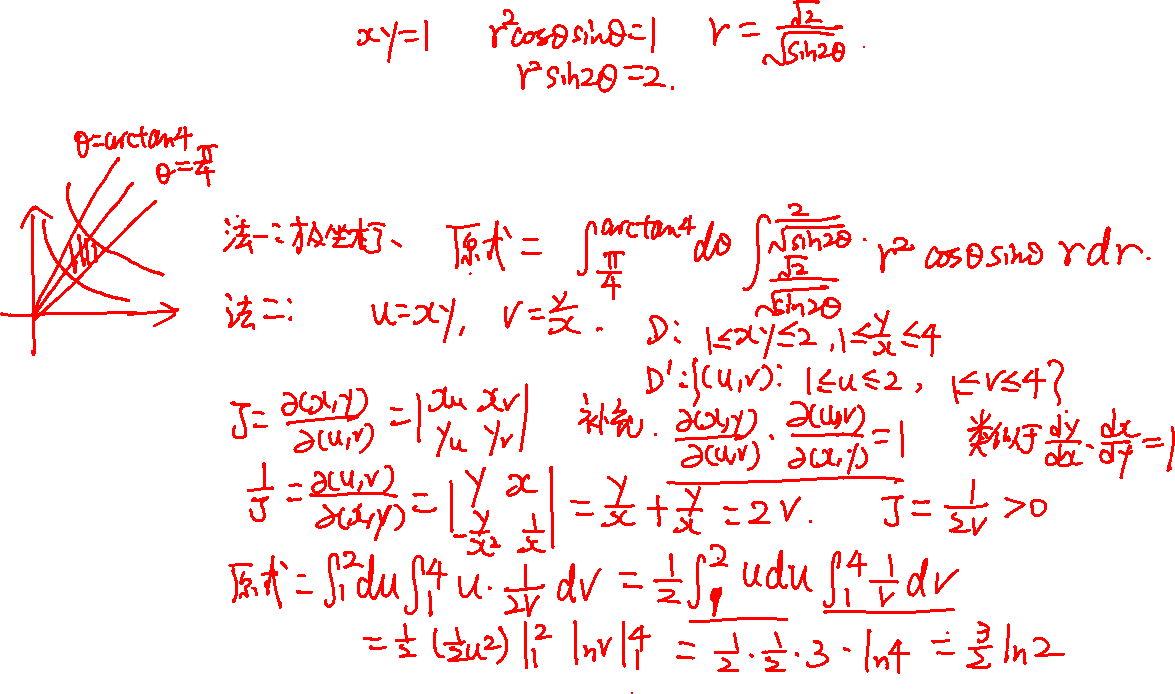 xy=1 r²cosθsinθ=1 r=√2/√sin2θ.
r²sin2θ=2.
θ=arctan4
θ=π/4
法一:极坐标、 原式=∫_{π/4}^{arctan4}dθ∫_{√2/√sin2θ}^{2/√sin2θ}·r²cosθsinθ rdr.
法二: u=xy, v=y/x. D: 1≤xy≤2,1≤y/x≤4
D':{(u,v): 1≤u≤2, 1≤v≤4}
J=∂(x,y)/∂(u,v)=|x_u x_v; y_u y_v| 补充. ∂(x,y)/∂(u,v)·∂(u,v)/∂(x,y)=1 类似于dy/dx·dx/dy=1
1/J=∂(u,v)/∂(x,y)=|y x; -y/x² 1/x|=y/x+y/x=2v. J=1/2v>0
原式=∫₁²du∫₁⁴u·1/2v dv=1/2∫₁²udu∫₁⁴1/v dv
=1/2(1/2u²)|₁² lnv|₁⁴=1/2·1/2·3·ln4=3/2ln2